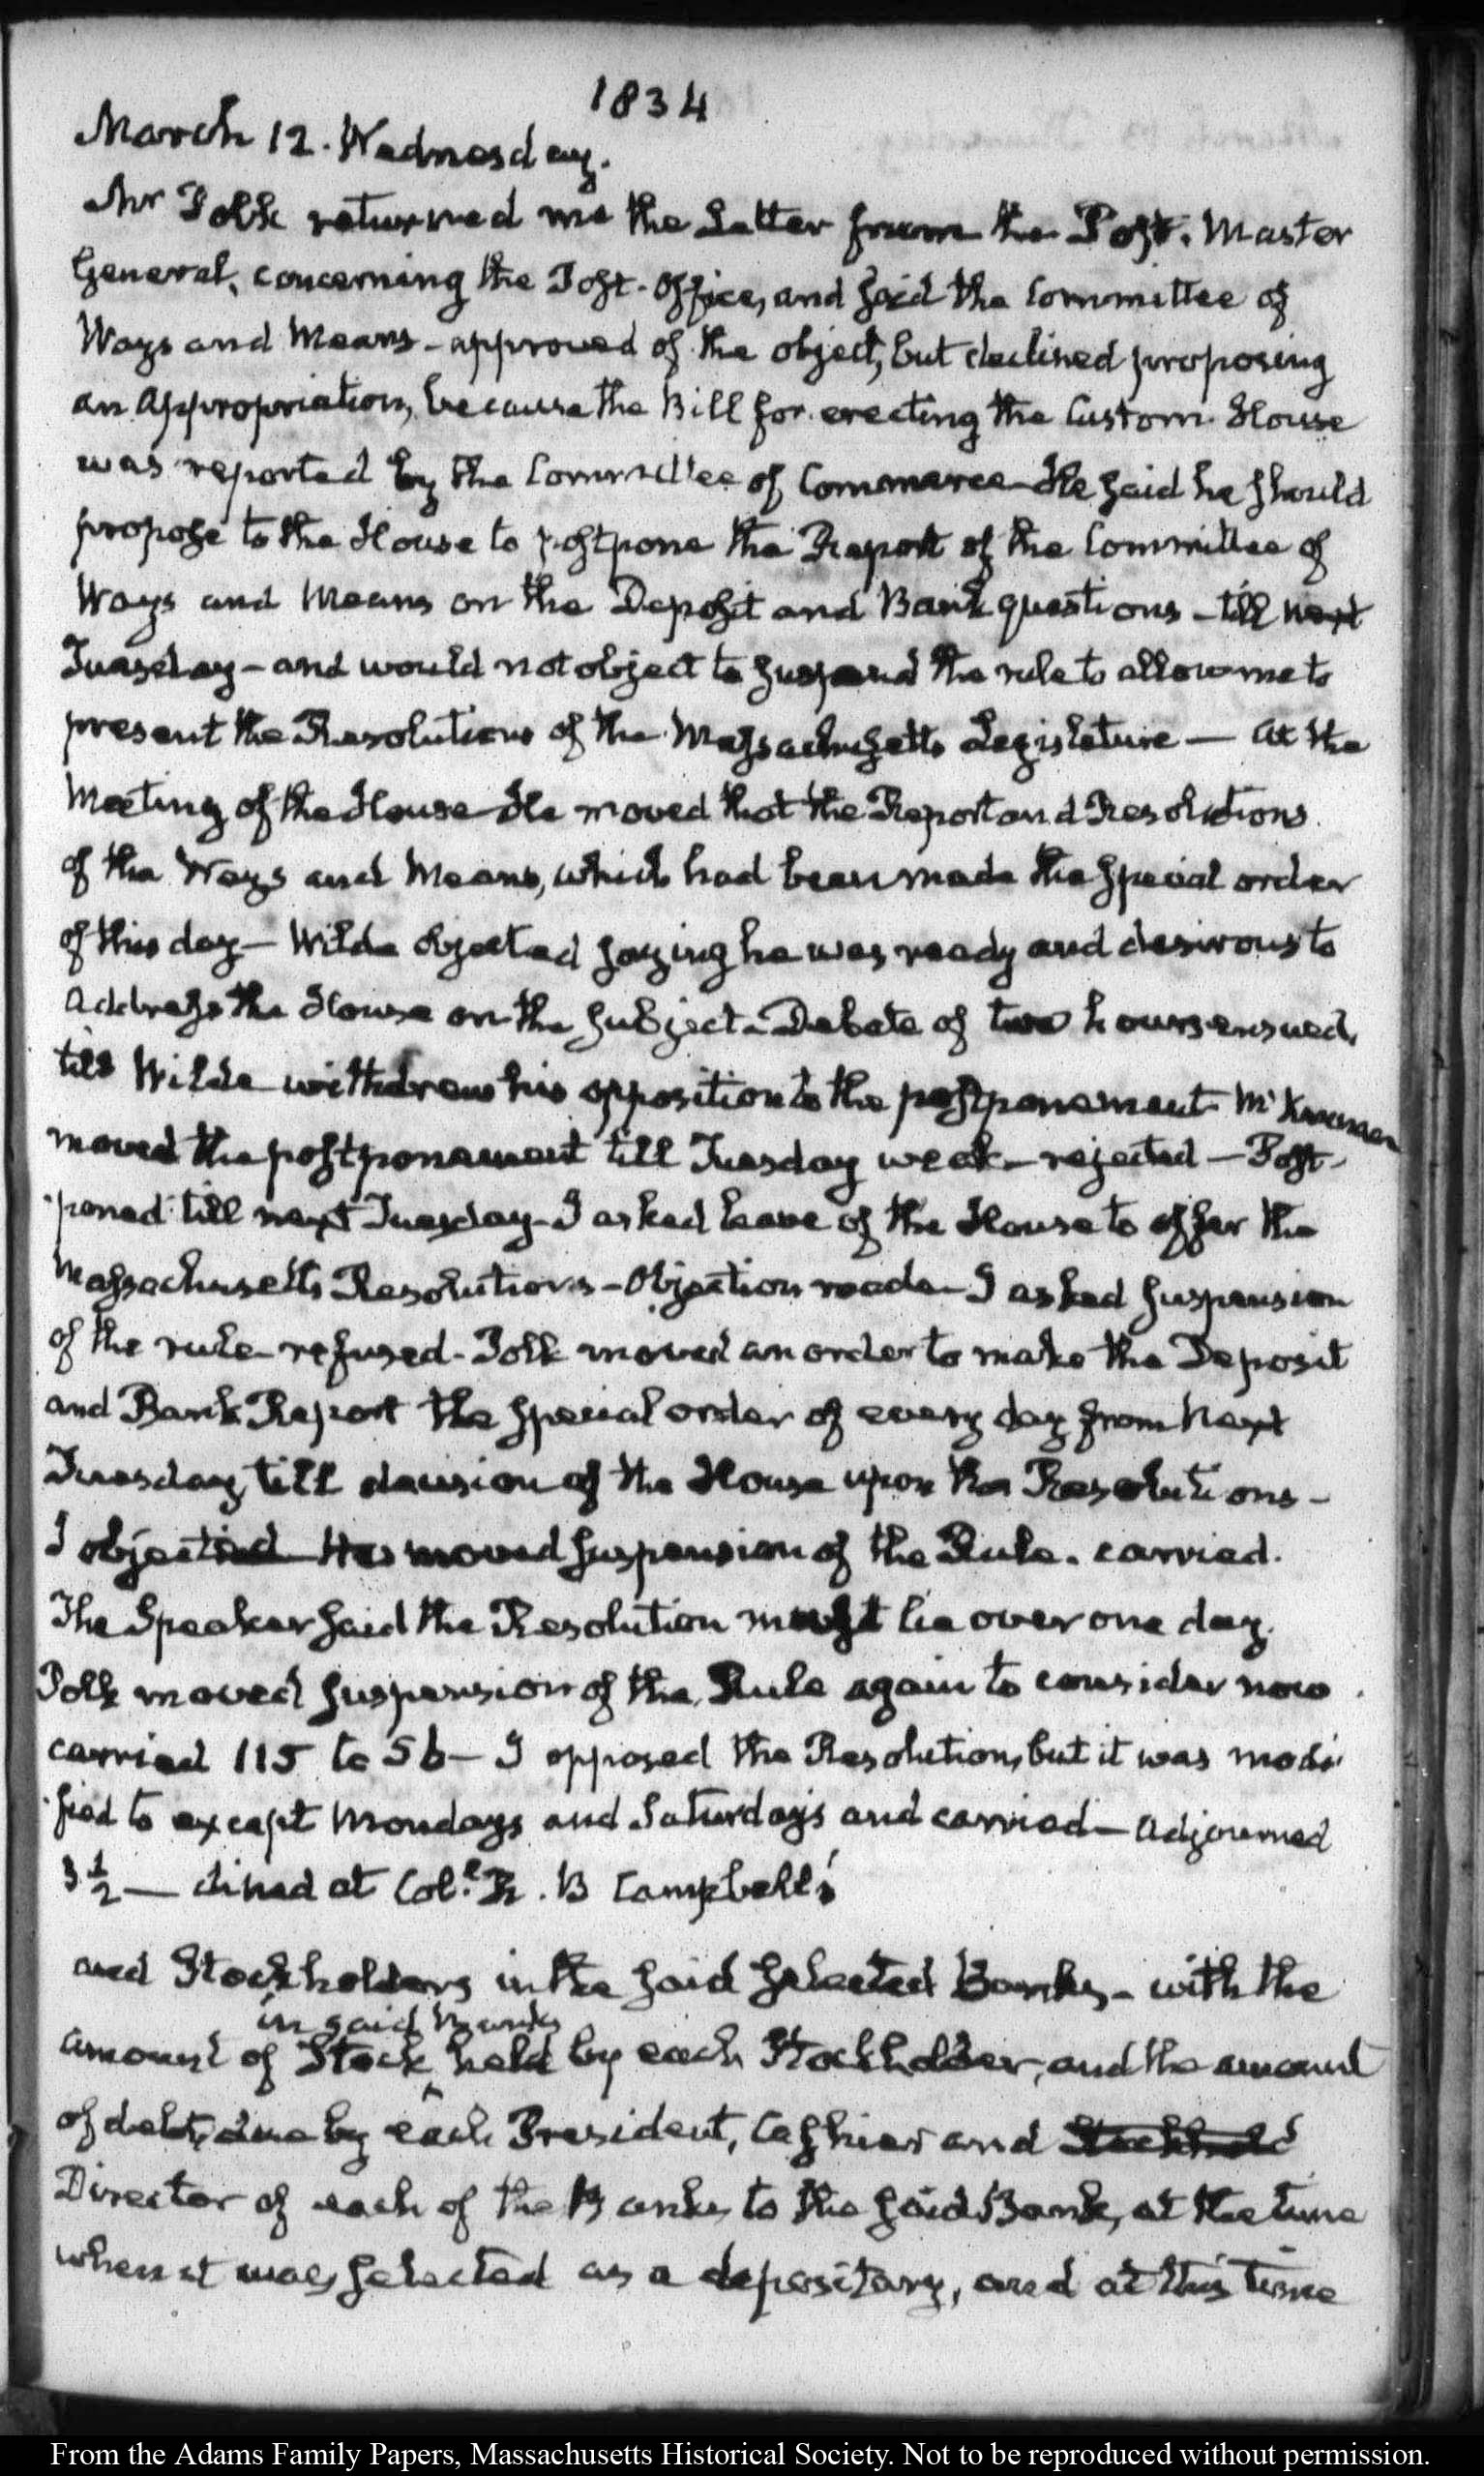 1834
March 12. Wednesday.
Mr Polk returned me the Letter from the Post. Master
General, concerning the Post-Office, and said the Committee of
Ways and Means - approved of the object, but declined proposing
an Appropriation, because the Bill for erecting the Custom House
was reported by the Committee of Commerce - He said he should
propose to the House to postpone the Report of the Committee of
Ways and Means on the Deposit and Bank questions - till next
Tuesday - and would not object to suspend the rule to allow me to
present the Resolutions of the Massachusetts Legislature — At the
Meeting of the House He moved that the Report and Resolutions
of the Ways and Means, which had been made the special order
of this day - Wilde objected saying he was ready and desirous to
address the House on the subject - Debate of two hours ensued,
till Wilde withdrew his opposition to the postponement - McKennan
moved the postponement till Tuesday week - rejected - Post-
poned till next Tuesday - I asked leave of the House to offer the
Massachusetts Resolutions - Objection made - I asked suspension
of the rule - refused - Polk moved an order to make the Deposit
and Bank Report the special order of every day from Next
Tuesday, till decision of the House upon the Resolutions -
I objected - He moved suspension of the Rule. carried.
The Speaker said the Resolution must lie over one day.
Polk moved suspension of the Rule again to consider now
carried 115 to 56 - I opposed the Resolution, but it was modi
fied to except Mondays and Saturdays and carried - Adjourned
3 1/2 — dined at Coll. R. B Campbell's
and Stockholders in the said selected Banks - with the
in said Banks
amount of Stock held by each Stockholder, and the amount
of debt, due by each President, Cashier and Stockhold
Director of each of the Banks to the said Bank, at the time
when it was selected as a depositary, and at this time
From the Adams Family Papers, Massachusetts Historical Society. Not to be reproduced without permission.